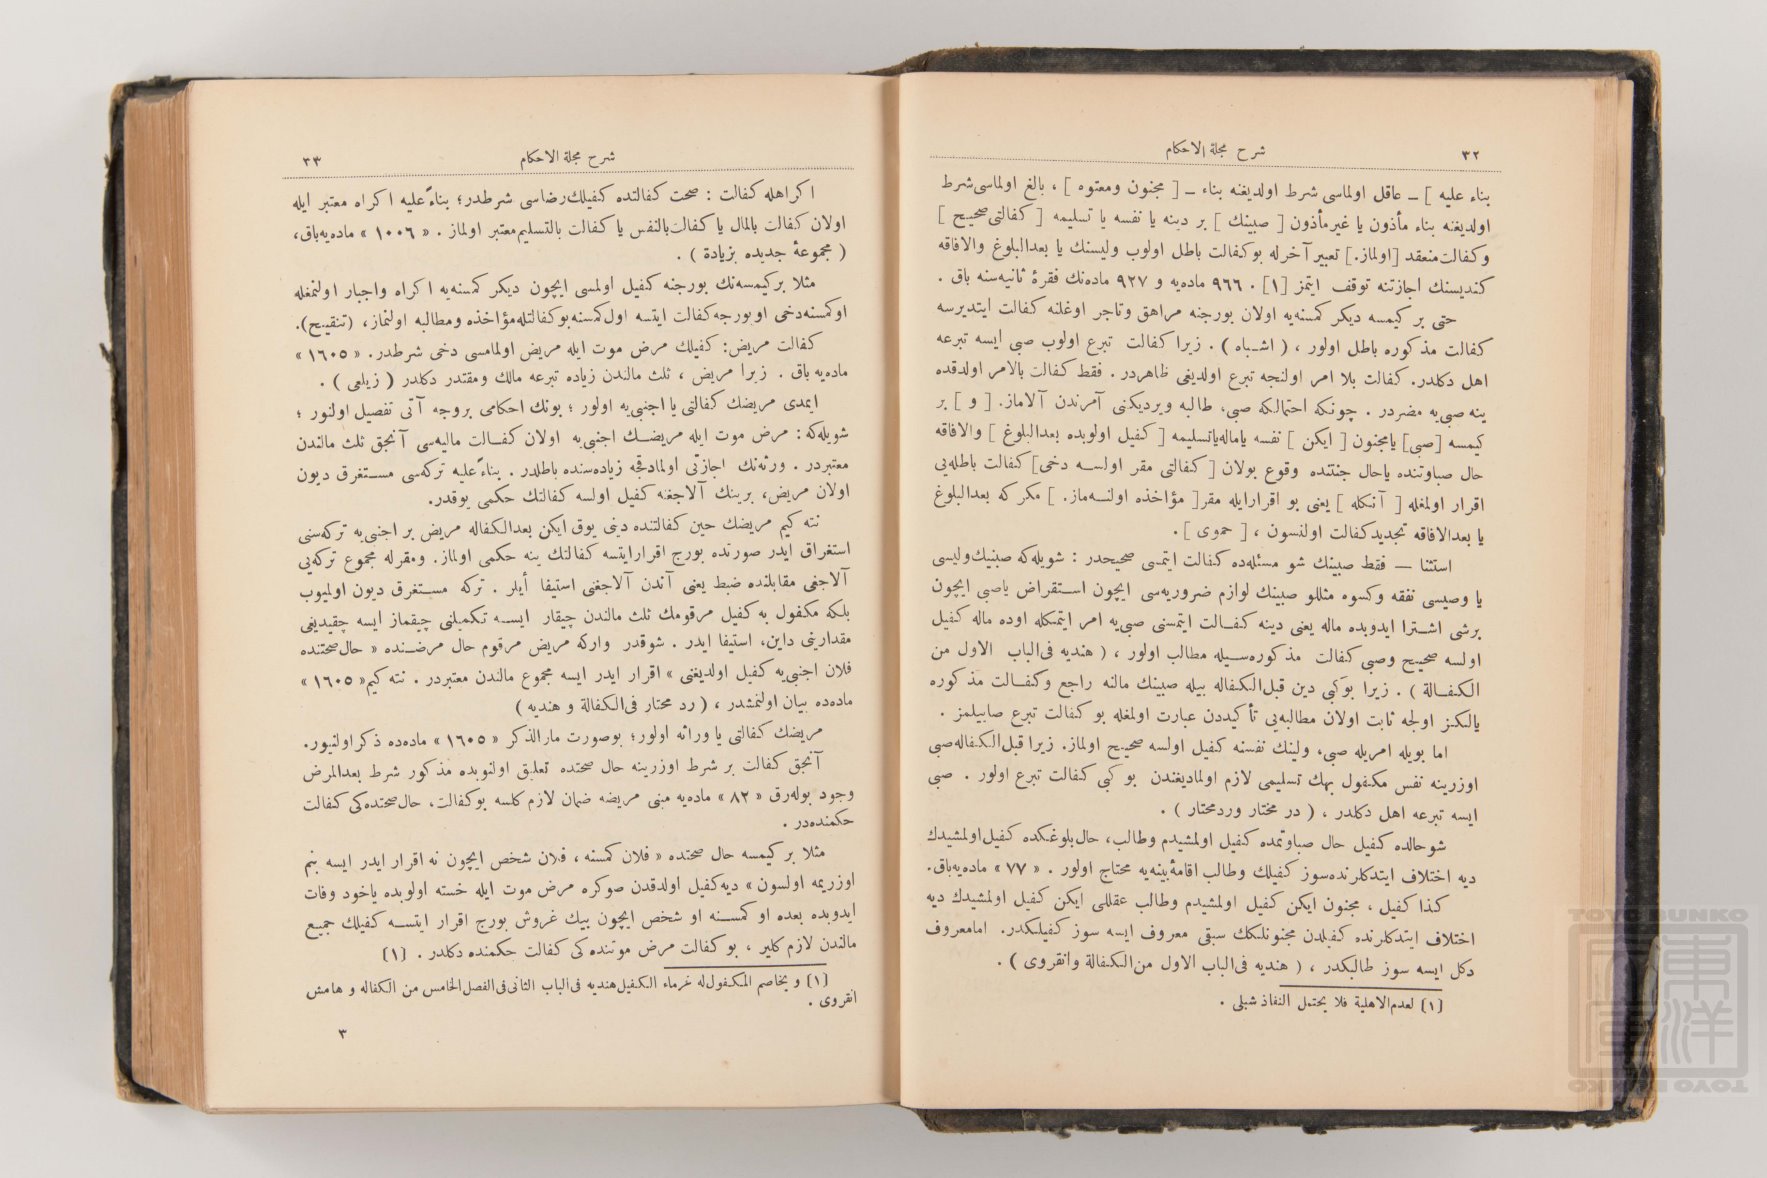 ٣٢
شرح مجلة الاحكام
بناء عليه ] ــ عاقل اولماسى شرط اولديغنه بناء ــ [ مجنون ومعتوه ] ، بالغ اولماسى شرط
اولديغنه بناء مأذون يا غير مأذون [ صبينك ] بر دينه يا نفسه يا تسليمه [ كفالتى صحيح ]
وكفالت منعقد [ اولماز. ] تعبير آخرله بو كفالت باطل اولوب وليسنك يا بعدالبلوغ والافاقه
كنديسنك اجازتنه توقف ايتمز [١] . ٩٦٦ ماده‌يه و ٩٢٧ ماده‌نك فقرهٔ ثانيه‌سنه باق .
حتى بر كيمسه ديكر كمسنه‌يه اولان بورجنه مراهق وتاجر اوغلنه كفالت ايتديرسه
كفالت مذكوره باطل اولور ، ( اشباه ) . زيرا كفالت تبرع اولوب صبى ايسه تبرعه
اهل دكلدر. كفالت بلا امر اولنجه تبرع اولديغى ظاهردر . فقط كفالت بالامر اولدقده
ينه صبى‌يه مضردر . چونكه احتمالكه صبى، طالبه ويرديكنى آمرندن آلاماز. [ و ] بر
كيمسه [صبى] يامجنون [ ايكن ] نفسه ياماله ياتسليمه [ كفيل اولوبده بعدالبلوغ ] والافاقه
حال صباوتنده ياحال جنتنده وقوع بولان [ كفالتى مقر اولسه دخى] كفالت باطله‌يى
اقرار اولمغله [ آنكله ] يعنى بو اقرارايله مقر[ مؤاخذه اولنه‌ماز. ] مكر كه بعدالبلوغ
يا بعدالافاقه تجديد كفالت اولنسون ، [ حموى ] .
استثنا — فقط صبينك شو مسئله‌ده كفالت ايتمسى صحيحدر : شويله‌كه صبينك وليسى
يا وصيسى نفقه وكسوه مثللو صبينك لوازم ضروريه‌سى ايچون استقراض ياصبى ايچون
برشى اشترا ايدوبده ماله يعنى دينه كفالت ايتمسنى صبى‌يه امر ايتمكله اوده ماله كفيل
اولسه صحيح وصبى كفالت مذكوره‌سيله مطالب اولور ، ( هنديه فى‌الباب الاول من
الكفالة ) . زيرا بوكبى دين قبل‌الكفاله بيله صبينك مالنه راجع وكفالت مذكوره
يالكز اولجه ثابت اولان مطالبه‌يى تأكيددن عبارت اولمغله بو كفالت تبرع صايلمز .
اما بويله امريله صبى، ولينك نفسنه كفيل اولسه صحيح اولماز. زيرا قبل‌الكفاله صبى
اوزرينه نفس مكفول بهك تسليمى لازم اولماديغندن بو كبى كفالت تبرع اولور . صبى
ايسه تبرعه اهل دكلدر ، ( در مختار وردمحتار ) .
شوحالده كفيل حال صباوتمده كفيل اولمشيدم وطالب، حال بلوغكده كفيل اولمشيدك
ديه اختلاف ايتدكلرنده سوز كفيلك وطالب اقامهٔ بينه‌يه محتاج اولور . « ٧٧ » ماده‌يه باق.
كذا كفيل ، مجنون ايكن كفيل اولمشيدم وطالب عقللى ايكن كفيل اولمشيدك ديه
اختلاف ايتدكلرنده كفيلدن مجنونلكك سبقى معروف ايسه سوز كفيلكدر. امامعروف
دكل ايسه سوز طالبكدر ، ( هنديه فى‌الباب الاول من‌الكفالة وانقروى ) .
[١] لعدم‌الاهلية فلا يحتمل النفاذ شبلى .
٣٣
شرح مجلة الاحكام
اكراهله كفالت : صحت كفالتده كفيلك رضاسى شرطدر؛ بناءً عليه اكراه معتبر ايله
اولان كفالت بالمال يا كفالت بالنفس يا كفالت بالتسليم معتبر اولماز . « ١٠٠٦ » ماده‌يه باق،
( مجموعهٔ جديده بزيادة ) .
مثلا بر كيمسه‌نك بورجنه كفيل اولمسى ايچون ديكر كمسنه‌يه اكراه واجبار اولنمغله
اوكمسنه دخى اوبورجه كفالت ايتسه اول كمسنه بوكفالتله مؤاخذه ومطالبه اولنماز، (تنقيح).
كفالت مريض: كفيلك مرض موت ايله مريض اولمامسى دخى شرطدر. « ١٦٠٥ »
ماده‌يه باق . زيرا مريض ، ثلث مالندن زياده تبرعه مالك ومقتدر دكلدر ( زيلعى ) .
ايمدى مريضك كفالتى يا اجنبى‌يه اولور ؛ بونك احكامى بروجه آتى تفصيل اولنور ؛
شويله‌كه : مرض موت ايله مريضك اجنبى‌يه اولان كفالت ماليه‌سى آنجق ثلث مالندن
معتبردر . ورثه‌نك اجازتى اولمادقجه زياده‌سنده باطلدر . بناءً عليه تركه‌سى مستغرق ديون
اولان مريض، برينك آلاجغنه كفيل اولسه كفالتك حكمى يوقدر.
نته كيم مريضك حين كفالتنده دينى يوق ايكن بعدالكفاله مريض بر اجنبى‌يه تركه‌سنى
استغراق ايدر صورتده بورج اقرارايتسه كفالتك ينه حكمى اولماز. ومقرله مجموع تركه‌يى
آلاجغى مقابلنده ضبط يعنى آندن آلاجغنى استيفا أيلر . تركه مستغرق ديون اولميوب
بلكه مكفول به كفيل مرقومك ثلث مالندن چيقار ايسه تكميلنى چيقماز ايسه چقيديغى
مقدارينى داين، استيفا ايدر . شوقدر واركه مريض مرقوم حال مرضنده « حال صحتنده
فلان اجنبى‌يه كفيل اولديغنى » اقرار ايدر ايسه مجموع مالندن معتبردر . نته كيم « ١٦٠٥ »
ماده‌ده بيان اولنمشدر ، ( رد محتار فى‌الكفالة و هنديه )
مريضك كفالتى يا وراثه اولور؛ بوصورت مارالذكر « ١٦٠٥ » ماده‌ده ذكراولنيور.
آنجق كفالت بر شرط اوزرينه حال صحتده تعليق اولنوبده مذكور شرط بعدالمرض
وجود بوله‌رق « ٨٢ » ماده‌يه مبنى مريضه ضمان لازم كلسه بوكفالت، حال صحتده‌كى كفالت
حكمنده‌در .
مثلا بر كيمسه حال صحتده « فلان كمسنه ، فلان شخص ايچون نه اقرار ايدر ايسه بنم
اوزريمه اولسون » ديه كفيل اولدقدن صوكره مرض موت ايله خسته اولوبده ياخود وفات
ايدوبده بعده او كمسنه او شخص ايچون بيك غروش بورج اقرار ايتسه كفيلك جميع
مالندن لازم كلير ، بو كفالت مرض موتنده كى كفالت حكمنده دكلدر . [١]
[١] و يخاصم المكفول‌له غرماء الكفيل هنديه فى‌الباب الثانى فى‌الفصل‌الخامس من الكفاله و هامش
انقروى .
٣
TOYO BUNKO
東洋文庫
TOYO BUNKO